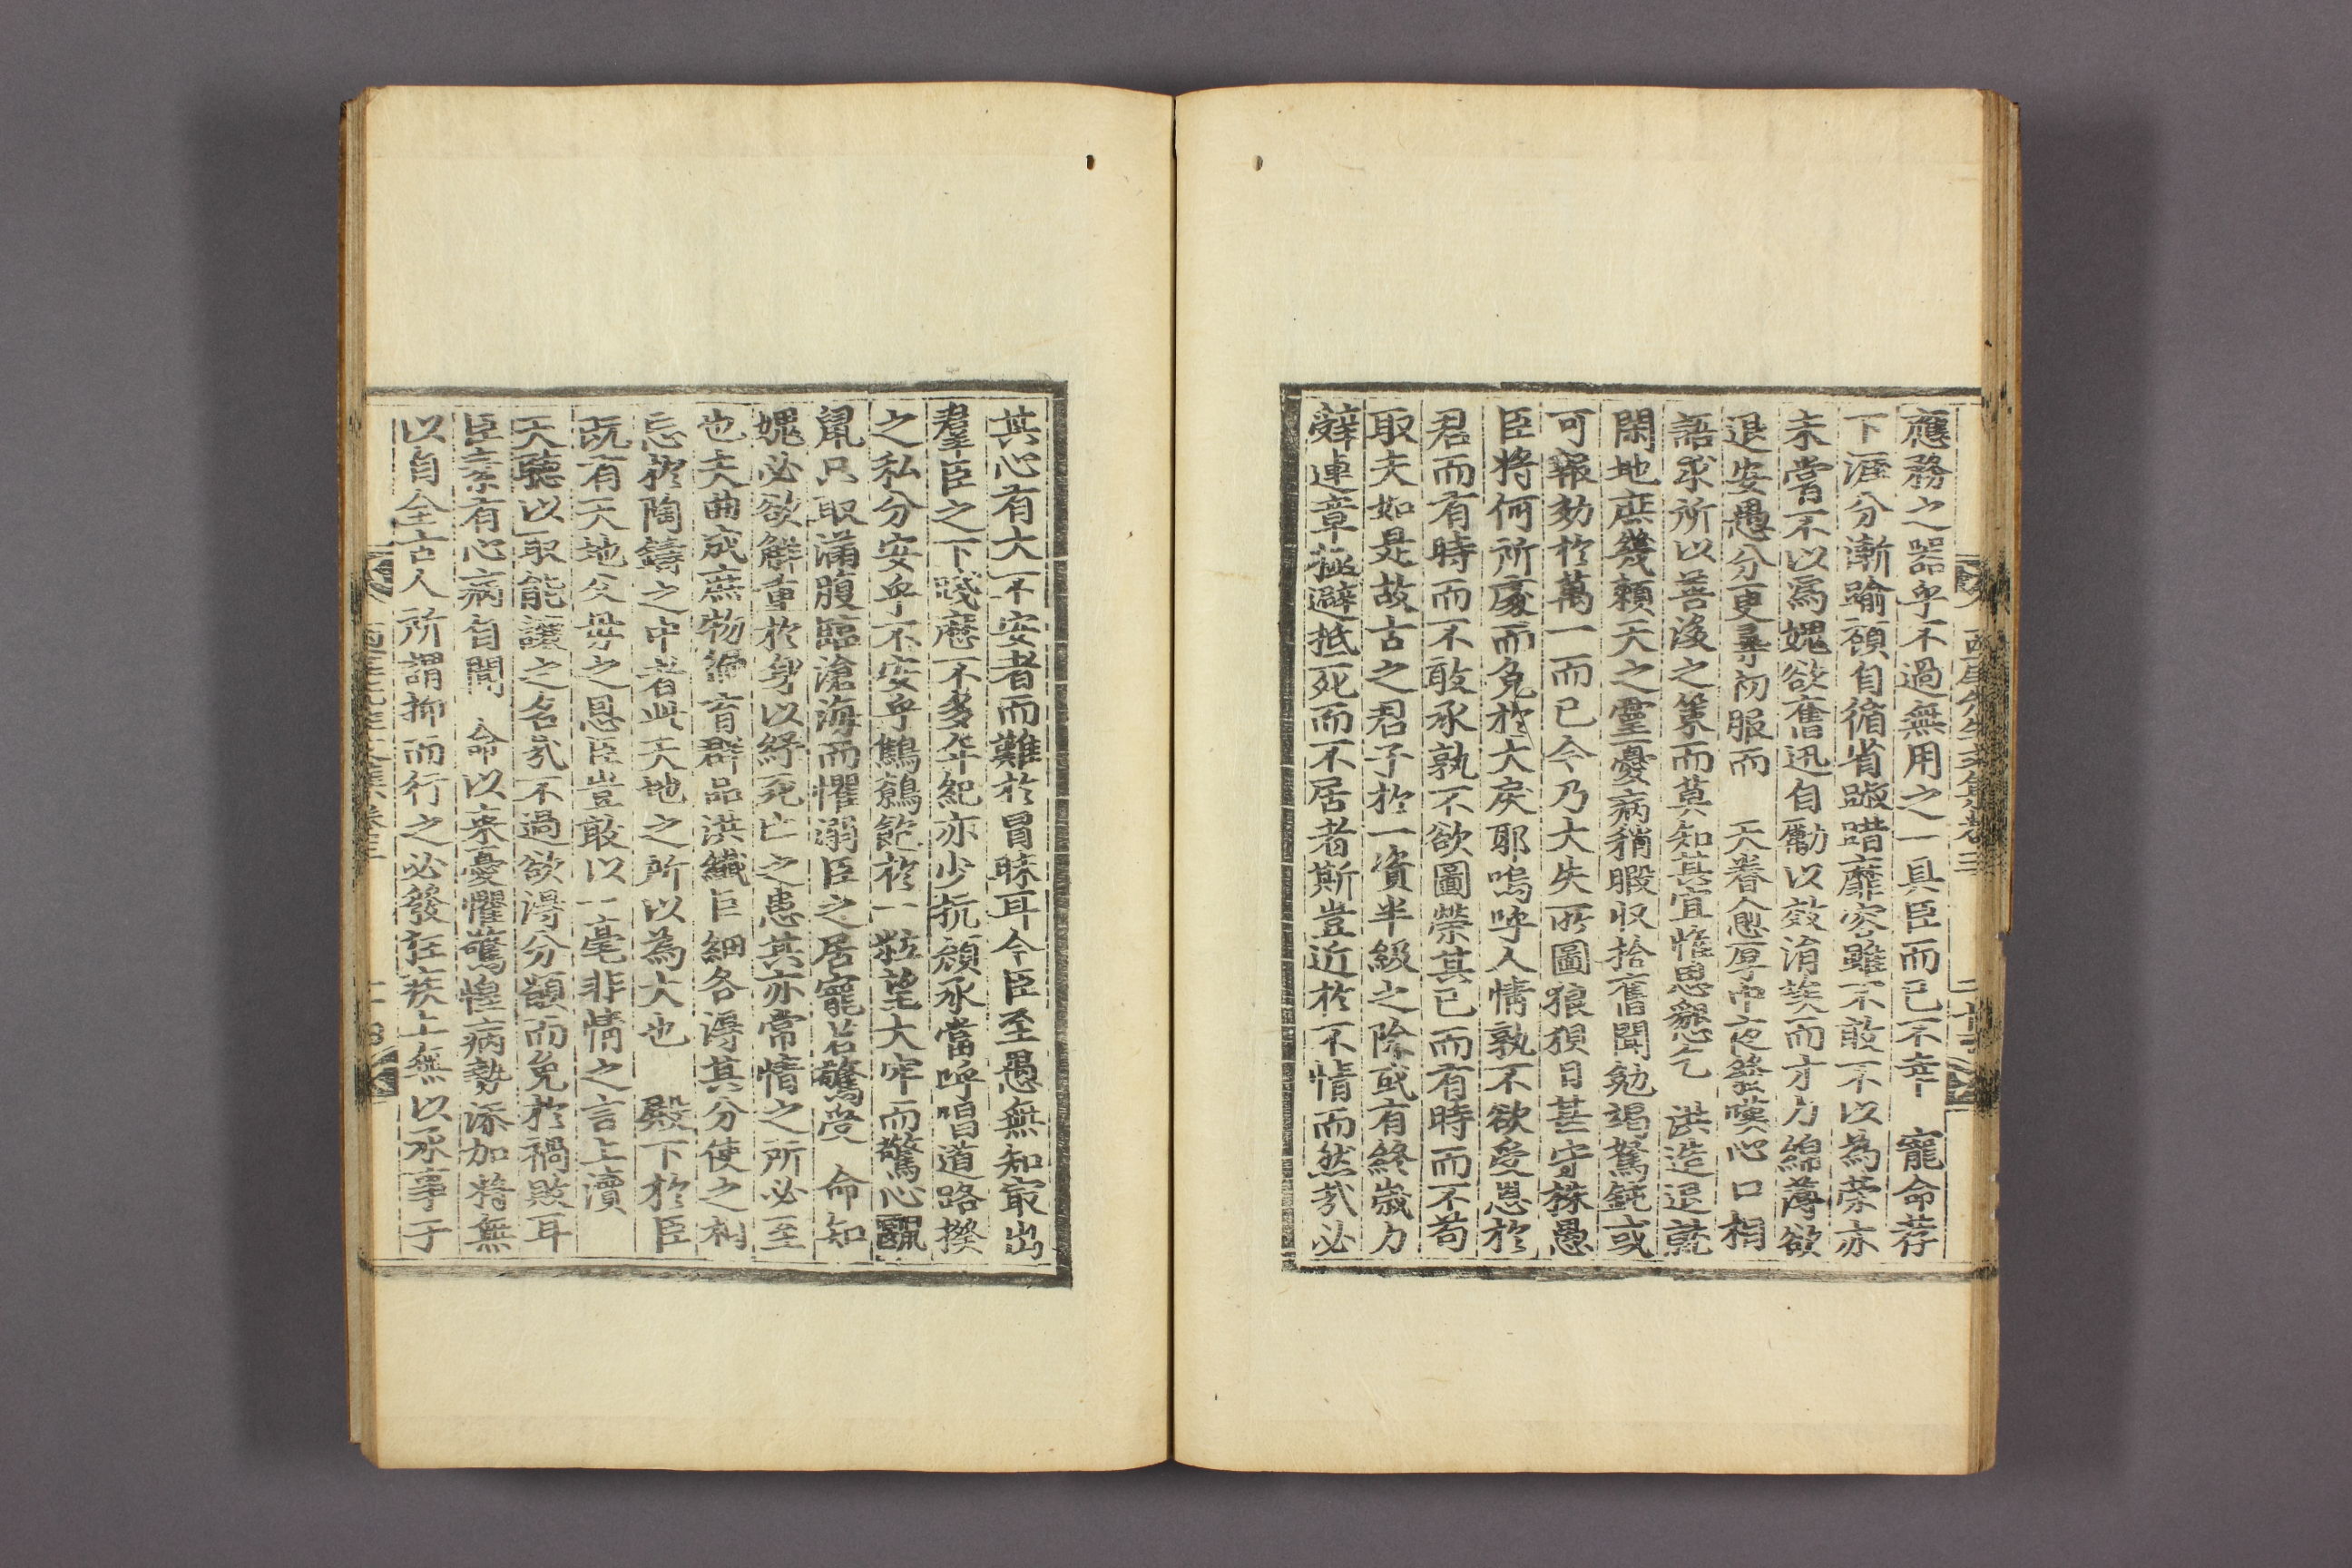 西厓先生文集卷三
應務之器乎不過無用之一具臣而已不幸 寵命荐
下涯分漸踰顧自循省踧踖靡容雖不敢不以為榮亦
未嘗不以爲媿欲奮迅自勵以效涓埃而才力綿薄欲
退安愚分更尋初服而 天眷愈厚中夜發嘆心口相
語求所以善後之策而莫知其宜惟思懇乞 洪造退就
閑地庶幾賴天之靈憂病稍暇収拾舊聞勉竭駑鈍或
可報効於萬一而已今乃大失所圖狼狽日甚守株愚
臣將何所處而免於大戾耶嗚呼人情孰不欲受恩於
君而有時而不敢承孰不欲圖榮其己而有時而不苟
取夫如是故古之君子於一資半級之除或有終歲力
辭連章極避抵死而不居者斯豈近於不情而然㢤必
其心有大不安者而難於冒昧耳今臣至愚無知㝡出
羣臣之下踐歷不多年紀亦少抗顔承當呼唱道路揆
之私分安乎不安乎鷦鷯飽於一粒望大牢而驚心鼴
鼠只取滿腹臨滄海而懼溺臣之居寵若驚受 命知
媿必欲觧重於身以紓死亡之患其亦常情之所必至
也夫曲成庶物涵育群品洪纖巨細各得其分使之相
忘於陶鑄之中者此天地之所以為大也 殿下於臣
既有天地父母之恩臣豈敢以一毫非情之言上瀆
天聽以取能讓之名㢤不過欲得分願而免於禍敗耳
臣素有心病自聞 命以來憂懼驚惶病勢添加將無
以自全古人所謂抑而行之必發狂疾上無以承事于
西厓先生文集卷三